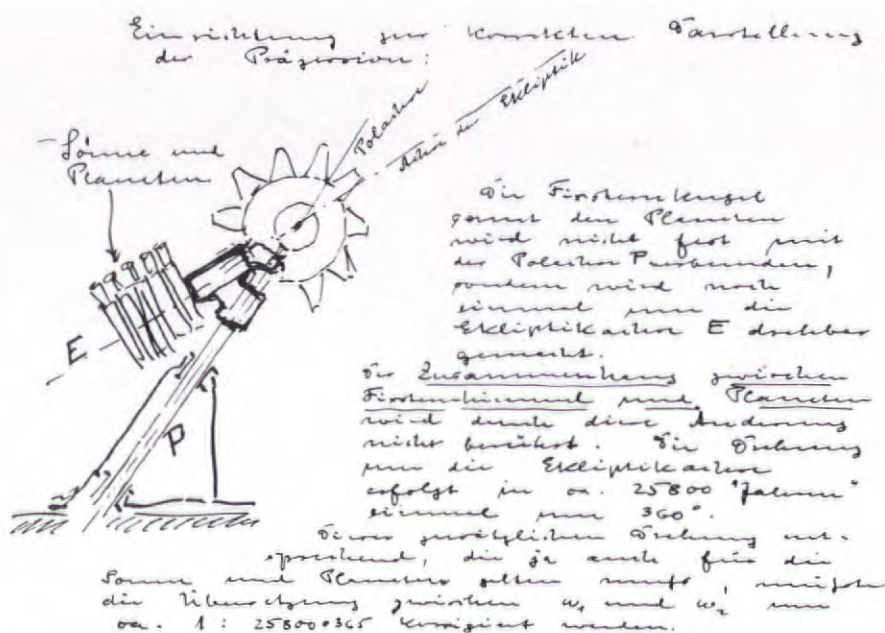 Einrichtung zur korrekten Darstellung
der Präzession:
Polachse
Achse der Ekliptik
Sonne und
Planeten
Die Fixsternkugel
samt den Planeten
wird nicht fest mit
der Polachse P verbunden,
sondern wird noch
einmal um die
Ekliptikachse E drehbar
gemacht.
E
Der Zusammenhang zwischen
Fixsternhimmel und Planeten
wird durch diese Änderung
nicht berührt. Die Drehung
um die Ekliptikachse
P
erfolgt in ca. 25800 "Jahren"
einmal um 360°.
Dieser zusätzlichen Drehung ent-
sprechend, die ja auch für die
Sonne und Planeten gelten muß, müßte
die Übersetzung zwischen w₁ und w₂ um
ca. 1 : 25800•365 korrigiert werden.